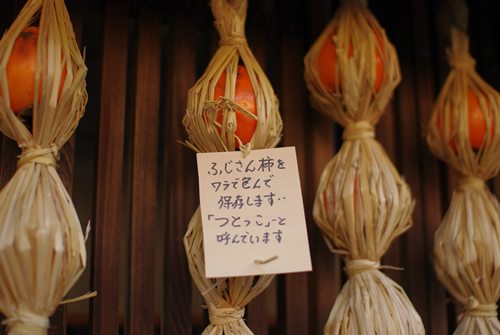 ふじさん柿を
ワラで包んで
保存します‥
「つとっこ」と
呼んでいます